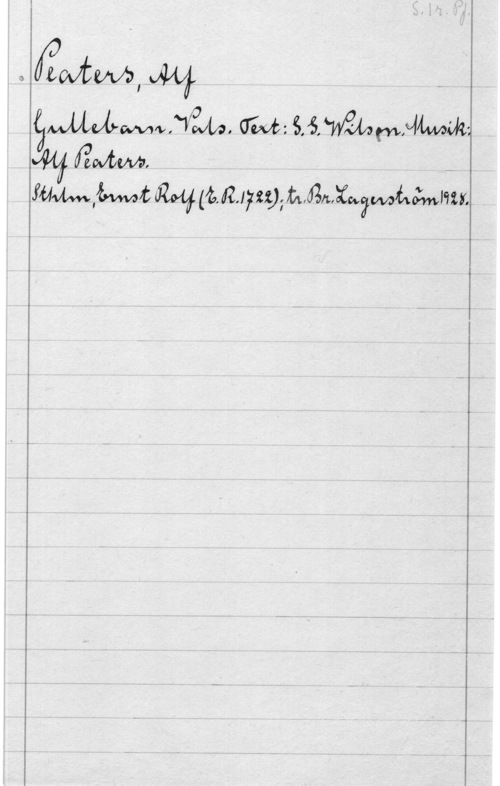 S. 1r. Pf.
Peaters, Alf
Gullebarn. Vals. Text: S.S. Wilson. Musik:
Alf Peaters.
Sthlm, Ernst Rolf (E.R. 1722); tr. Br. Lagerström 1928.